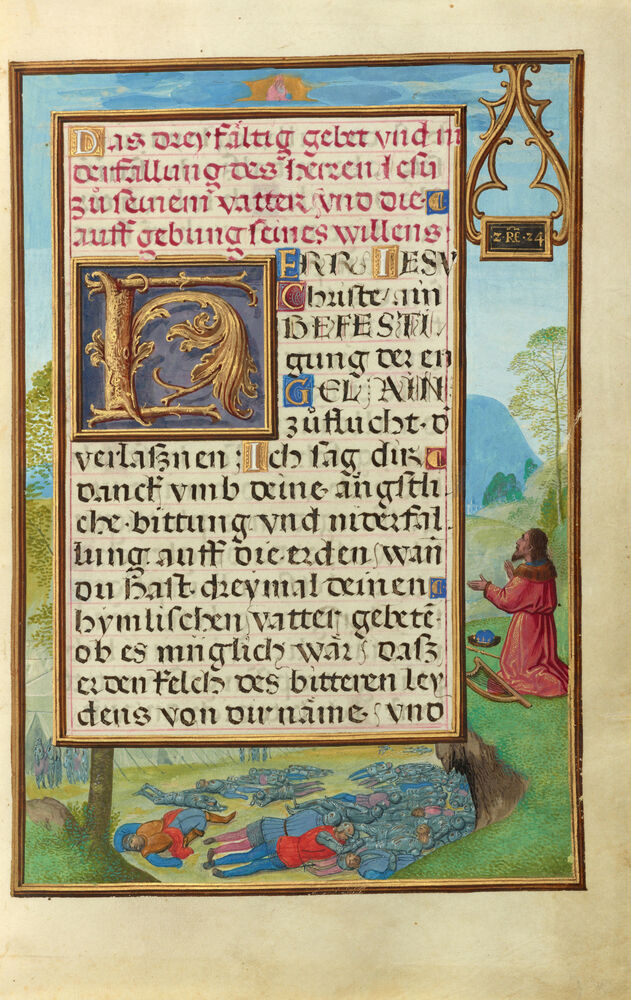 Das dreyfältig gebet vnd ni
derfallung des herren Jesu
zů seinem vatter vnd die
auff gebung seines willens
HERR IESV
Christe ain
BEFESTI
gung der en
GEL AIN
zůflucht d
verlaßnen ; Ich sag dir
danck vmb deine ångstli
che bittung vnd niderfal
lung auff die erden wañ
du hast dreymal deinen
hymlischen vatter gebetē
ob es müglich wår dasz
er den kelch des bitteren ley
dens von dir näme vnd